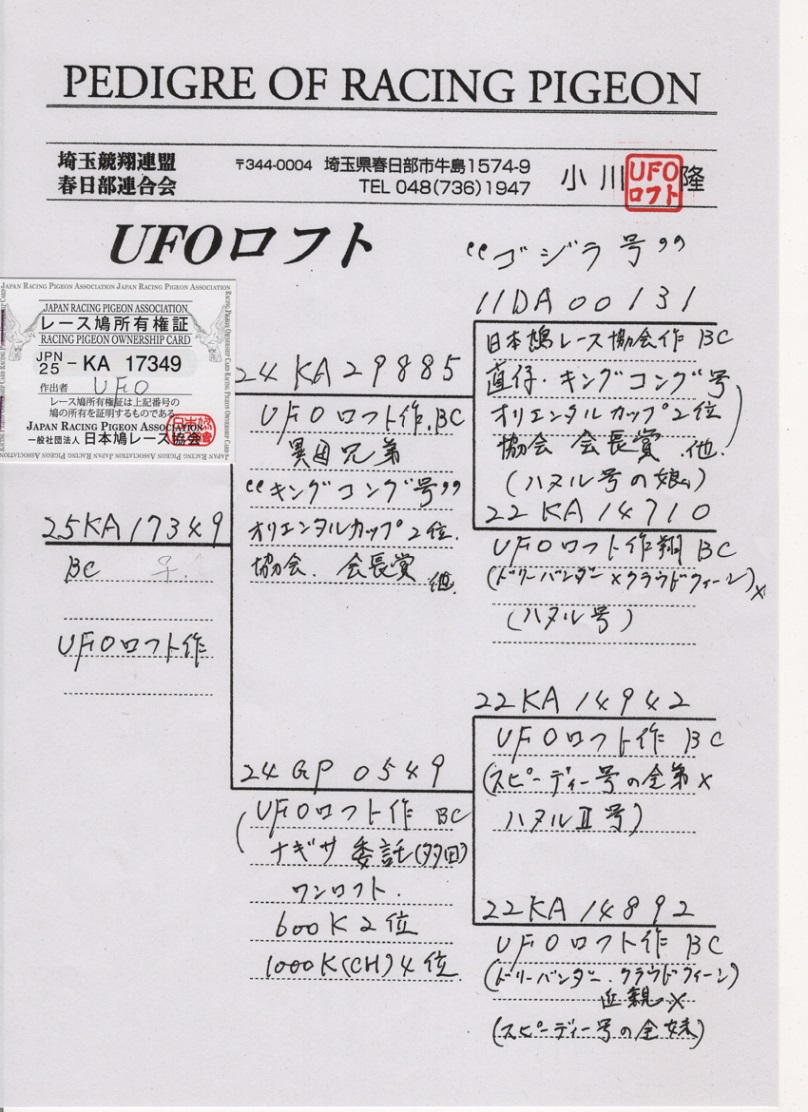 PEDIGRE OF RACING PIGEON
埼玉競翔連盟
春日部連合会
〒344-0004 埼玉県春日部市牛島1574-9
TEL 048(736)1947
小川 隆
UFO
ロフト
UFOロフト
JAPAN RACING PIGEON ASSOCIATION JAPAN RACING PIGEON ASSOCIATION
JAPAN RACING PIGEON ASSOCIATION
レース鳩所有権証
RACING PIGEON OWNERSHIP CARD
JPN
25 - KA 17349
作出者 UFO
レース鳩所有権証は上記番号の
鳩の所有を証明するものである
JAPAN RACING PIGEON ASSOCIATION
一般社団法人 日本鳩レース協会
25KA17349
BC
UFOロフト作
24 KA 29885
UFOロフト作.BC
異母兄弟
“キングコング号”
オリエンタルカップ2位.
協会. 会長賞 他.
24 GP 0549
(UFOロフト作 BC
ナギサ 委託(多田)
ワンロフト.
600K2位
1000K(CH)4位
“ゴジラ号”
11DA00131
日本鳩レース協会作 BC
直仔・キングコング号
オリエンタルカップ2位
協会 会長賞.他.)
(ハヌル号の娘)
22 KA 14710
UFOロフト作翔 BC
(ドリーバンダー×クラウドクィーン)×
(ハヌル号)
22KA 14942
UFOロフト作 BC
(スピーディー号の全弟×
ハヌルⅡ号)
22KA 14892
UFOロフト作 BC
(ドリーバンダー.クラウドクィーン)
近親×
(スピーディー号の全妹)